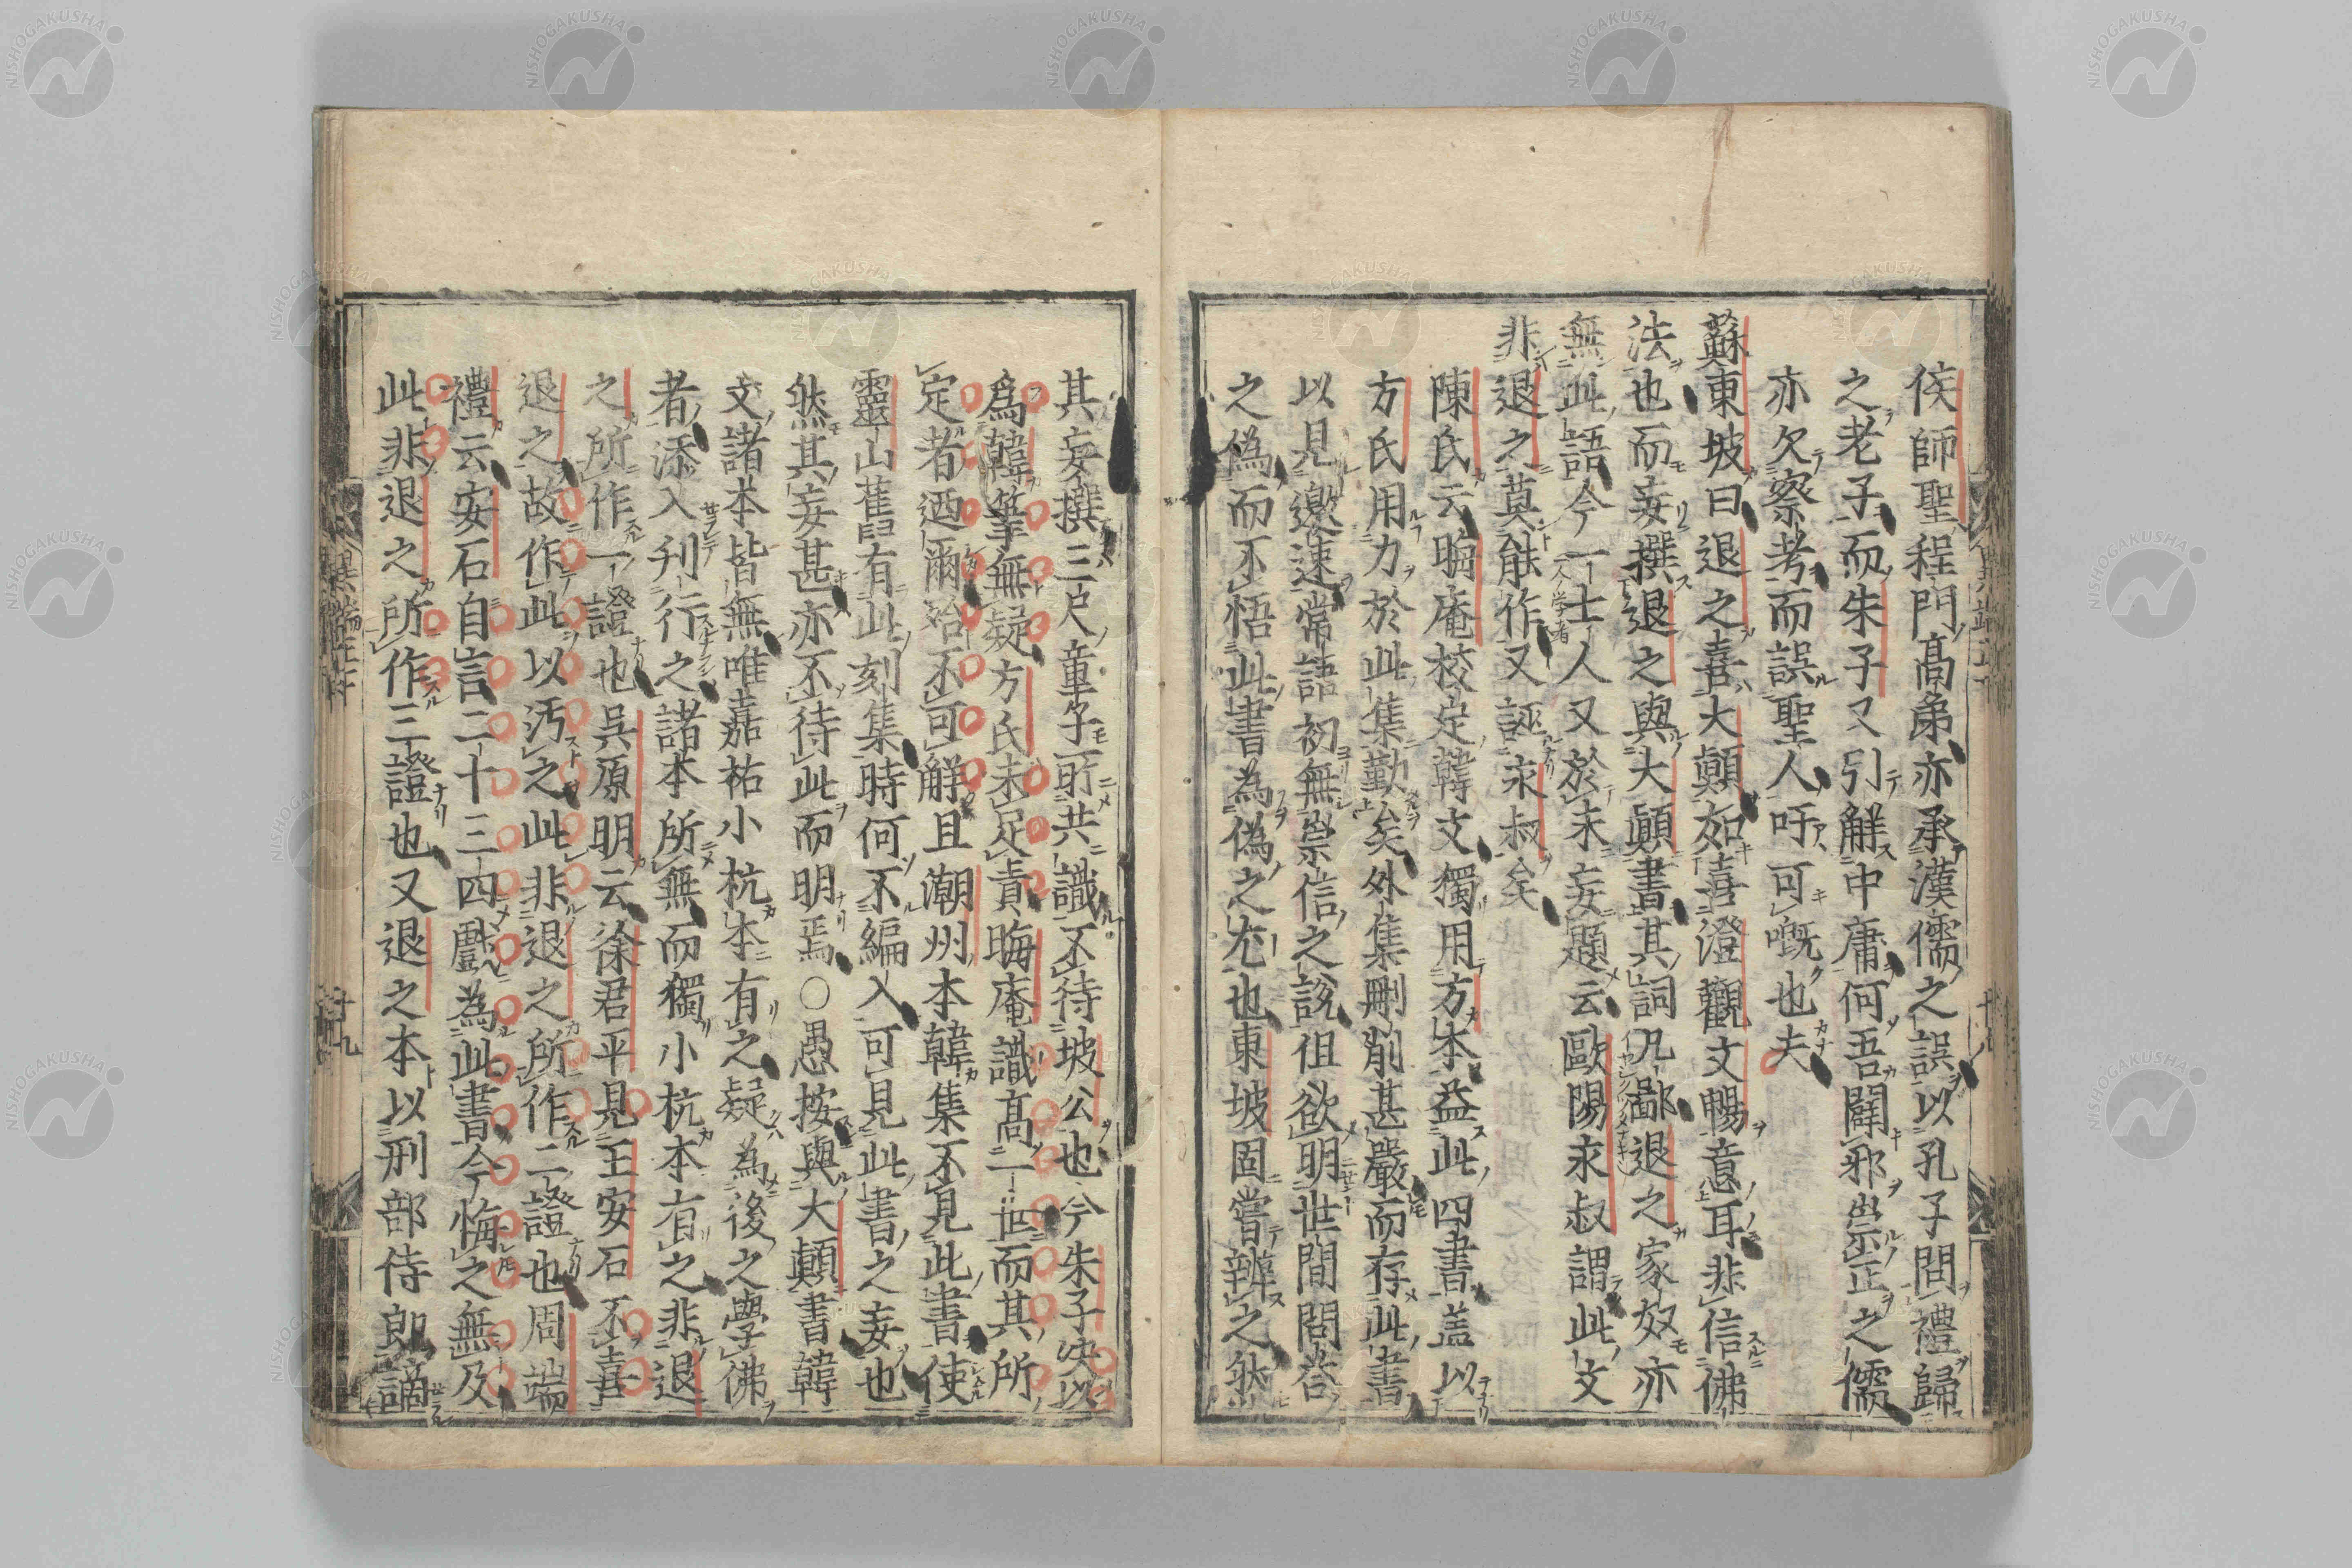 侯師聖程門髙弟亦承漢儒之誤以孔子問禮歸
之老子而朱子又引解中庸何吾闢邪崇正之儒
亦欠察考而誤聖人吁可嘅也夫
蘇東坡曰退之喜大顛如喜澄觀文暢意耳非信佛
法也而妄撰退之與大顛書其詞凡鄙退之家奴亦
無此語今一士人又於末妄題云歐陽永叔謂此文
非退之莫能作又誣永叔矣
陳氏云晦庵校定韓文獨用方本益此四書盖以
方氏用力於此集勤矣外集刪削甚嚴而存此書
以見邀速常語初無崇信之說但欲明世間問荅
之偽而不悟此書為偽之尤也東坡固嘗辨之然
其妄撰三尺童子所共識不待坡公也今朱子决以
為韓筆無疑方氏未足責晦庵識高一世而其所
定者迺爾殆不可觧且潮州本韓集不見此書使
靈山舊有此刻集時何不編入可見此書之妄也
然其妄甚亦不待此而明焉○愚按與大顛書韓
文諸本皆無唯嘉祐小杭本有之疑為後之學佛
者添入刋行之諸本所無而獨小杭本有之非退
之所作一證也吳原明云徐君平見王安石不喜
退之故作此以汚之此非退之所作二證也周端
禮云安石自言二十三四戲為此書今悔之無及
此非退之所作三證也又退之本以刑部侍郎謫
十九
NISHOGAKUSHA